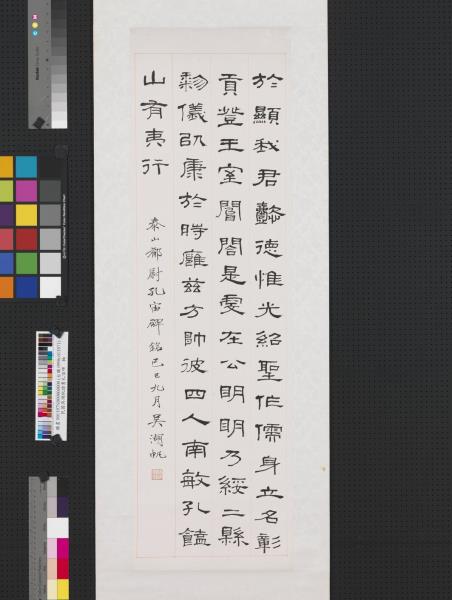 於顯我君懿德惟光紹聖作儒身立名彰
貢登王室閽閤是虔在公明明乃綏二縣
黎儀以康於時廱茲方帥彼四人南畝孔饁
山有夷行
泰山都尉孔宙碑銘己巳九月吳湖帆